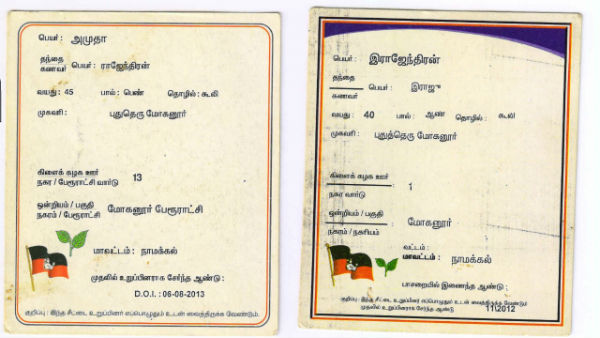 பெயர் : அமுதா
தந்தை
கணவர் பெயர் : ராஜேந்திரன்
வயது : 45 பால் : பெண் தொழில் : கூலி
முகவரி : புதுதெரு மோகனூர்
கிளைக் கழக ஊர்
நகர / பேரூராட்சி வார்டு 13
ஒன்றியம் / பகுதி
நகரம் / பேரூராட்சி மோகனூர் பேரூராட்சி
மாவட்டம் : நாமக்கல்
முதலில் உறுப்பினராக சேர்ந்த ஆண்டு :
D.O.I. : 06-08-2013
குறிப்பு : இந்த சீட்டை உறுப்பினர் எப்பொழுதும் உடன் வைத்திருக்க வேண்டும்.
பெயர் : இராஜேந்திரன்
தந்தை
கணவர் பெயர் : இராஜு
வயது : 40 பால் : ஆண் தொழில் : கூலி
முகவரி : புதுத்தெரு மோகனூர்
கிளைக் கழக ஊர்
நகர வார்டு : 1
ஒன்றியம் / பகுதி
நகரம் / நகரியம் : மோகனூர்
வட்டம் :
மாவட்டம் : நாமக்கல்
பாசறையில் இணைந்த ஆண்டு :
குறிப்பு : இந்த சீட்டை உறுப்பினர் எப்பொழுதும் உடன் வைத்திருக்க வேண்டும்
முதலில் உறுப்பினராக சேர்ந்த ஆண்டு 11\2012